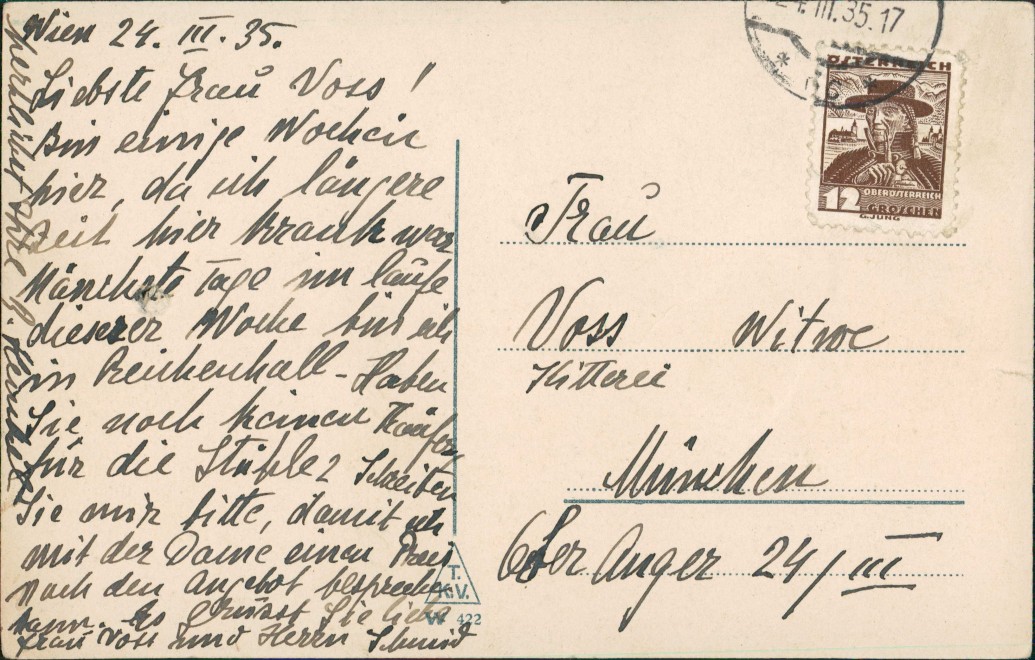 Wien 24. III. 35.
Liebste Frau Voss!
Bin einige Wochen
hier, da ich längere
Zeit hier krank war
Nächste Tage im laufe
dieserer Woche bin ich
in Reichenhall - Haben
Sie noch keinen Käufer
für die Stühle? Schreiben
Sie mir bitte, damit ich
mit der Dame einen Preis
nach den Angebot besprechen
kann. Es grüsst Sie liebe
Frau Voss und Herrn Schmid
herzlichst Ihre
24. III. 35. 17
ÖSTERREICH
12
OBERÖSTERREICH
GROSCHEN
G. JUNG
Frau
Voss Witwe
Kitterei
München
Ober Anger 24/III
T.
K.V.
W 422